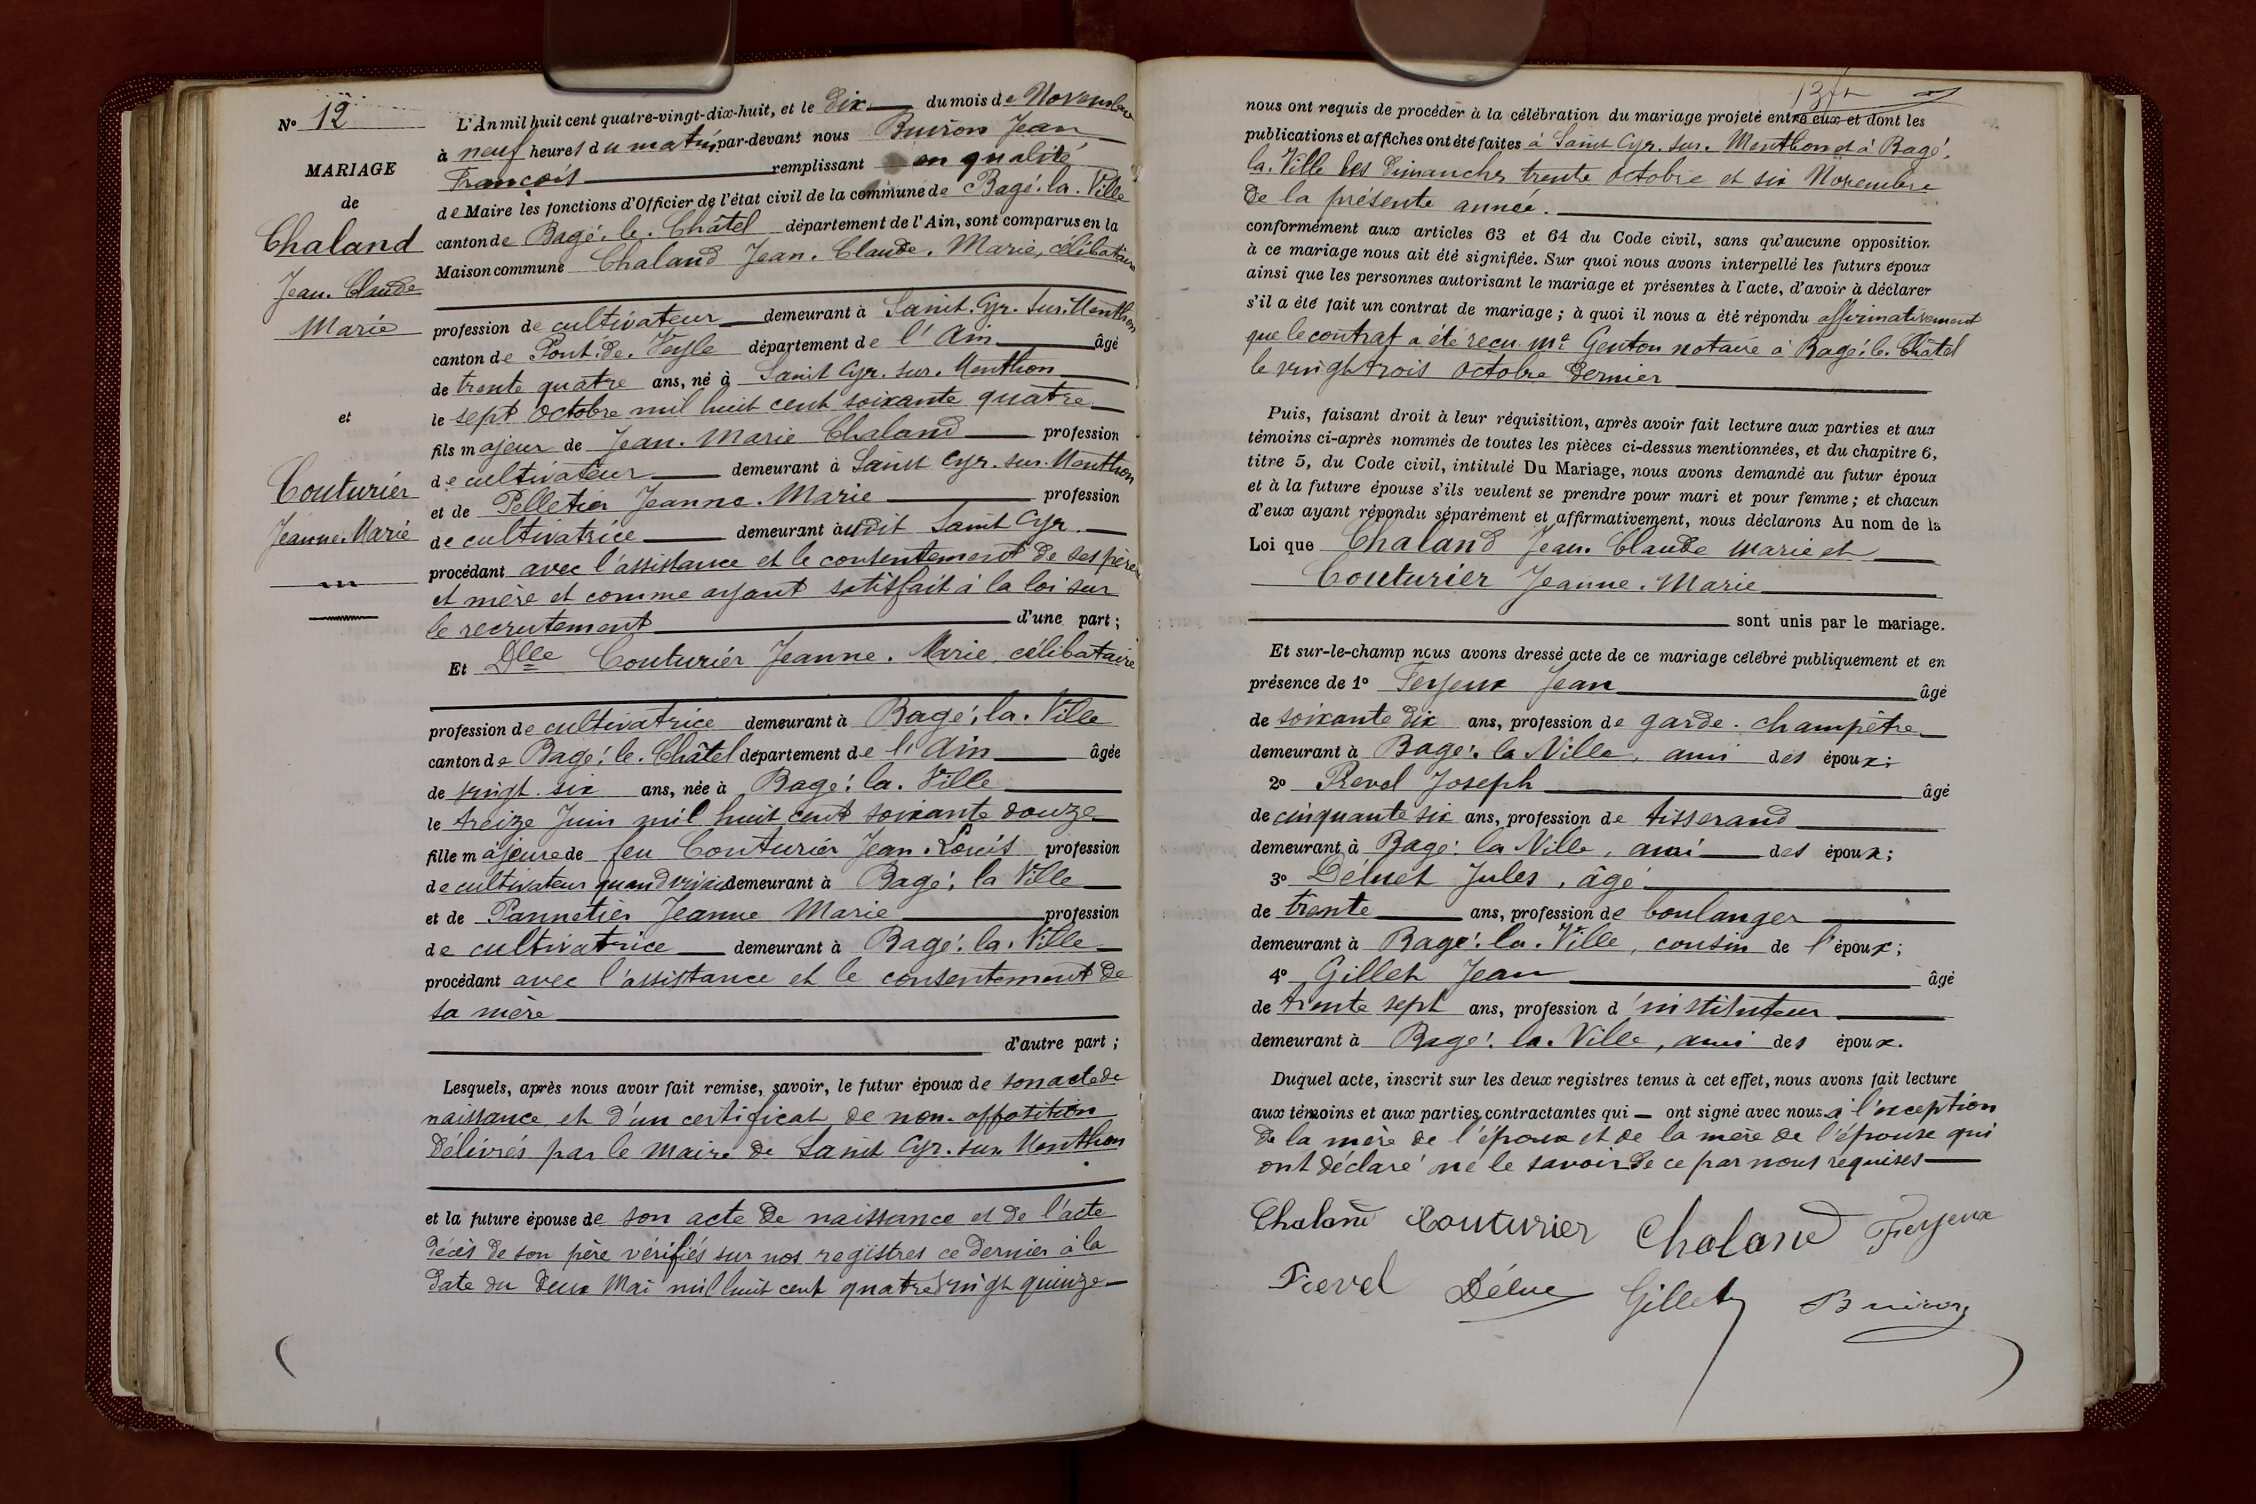 N° 12
MARIAGE
de
Chaland
Jean. Claude
Marie
et
Couturier
Jeanne. Marie
L'An mil huit cent quatre-vingt-dix-huit, et le dix du mois de Novembre
à neuf heures du matin, par-devant nous Buiron Jean
François remplissant en qualité
de Maire les fonctions d'Officier de l'état civil de la commune de Bagé. la. Ville
canton de Bagé. le. Châtel département de l'Ain, sont comparus en la
Maison commune Chaland Jean. Claude. Marie, célibataire
profession de cultivateur demeurant à Saint. Cyr. sur. Menthon
canton de Pont. de. Veyle département de l'Ain âgé
de trente quatre ans, né à Saint Cyr. sur. Menthon
le sept octobre mil huit cent soixante quatre
fils majeur de Jean. Marie Chaland profession
de cultivateur demeurant à Saint Cyr. sur. Menthon
et de Pelletier Jeanne. Marie profession
de cultivatrice demeurant audit Saint Cyr.
procédant avec l'assistance et le consentement de ses père
et mère et comme ayant satisfait à la loi sur
le recrutement d'une part;
Et Dlle Couturier Jeanne. Marie, célibataire
profession de cultivatrice demeurant à Bagé. la. Ville
canton de Bagé. le. Châtel département de l'Ain âgée
de vingt. six ans, née à Bagé. la. Ville
le treize Juin mil huit cent soixante douze
fille majeure de feu Couturier Jean. Louis profession
de cultivateur quand vivait demeurant à Bagé. la Ville
et de Pannetier Jeanne Marie profession
de cultivatrice demeurant à Bagé. la. Ville
procédant avec l'assistance et le consentement de
sa mère
d'autre part;
Lesquels, après nous avoir fait remise, savoir, le futur époux de son acte de
naissance et d'un certificat de non. opposition
délivrés par le Maire de Saint Cyr. sur Menthon
et la future épouse de son acte de naissance et de l'acte
décès de son père vérifiés sur nos registres ce dernier à la
date du deux Mai mil huit cent quatre vingt quinze
nous ont requis de procéder à la célébration du mariage projeté entre eux et dont les
publications et affiches ont été faites à Saint Cyr. sur. Menthon et à Bagé.
la. Ville les dimanches trente octobre et six Novembre
de la présente année.
conformément aux articles 63 et 64 du Code civil, sans qu'aucune opposition
à ce mariage nous ait été signifiée. Sur quoi nous avons interpellé les futurs époux
ainsi que les personnes autorisant le mariage et présentes à l'acte, d'avoir à déclarer
s'il a été fait un contrat de mariage; à quoi il nous a été répondu affirmativement
que le contrat a été reçu Me Genton notaire à Bagé. le. Châtel
le vingt trois octobre dernier
Puis, faisant droit à leur réquisition, après avoir fait lecture aux parties et aux
témoins ci-après nommés de toutes les pièces ci-dessus mentionnées, et du chapitre 6,
titre 5, du Code civil, intitulé Du Mariage, nous avons demandé au futur époux
et à la future épouse s'ils veulent se prendre pour mari et pour femme; et chacun
d'eux ayant répondu séparément et affirmativement, nous déclarons Au nom de la
Loi que Chaland Jean. Claude Marie et
Couturier Jeanne. Marie
sont unis par le mariage.
Et sur-le-champ nous avons dressé acte de ce mariage célébré publiquement et en
présence de 1° Feyeux Jean âgé
de soixante dix ans, profession de garde. champêtre
demeurant à Bagé. la Ville, ami des époux;
2° Revel Joseph âgé
de cinquante six ans, profession de tisserand
demeurant à Bagé. la Ville, ami des époux;
3° Déluet Jules, âgé
de trente ans, profession de boulanger
demeurant à Bagé. la. Ville, cousin de l'époux;
4° Gillet Jean âgé
de trente sept ans, profession d'instituteur
demeurant à Bagé. la. Ville, ami des époux.
Duquel acte, inscrit sur les deux registres tenus à cet effet, nous avons fait lecture
aux témoins et aux parties contractantes qui ont signé avec nous à l'exception
de la mère de l'époux et de la mère de l'épouse qui
ont déclaré ne le savoir de ce par nous requises
Chaland Couturier Chaland Feyeux
Revel Délue Gillet Buiron